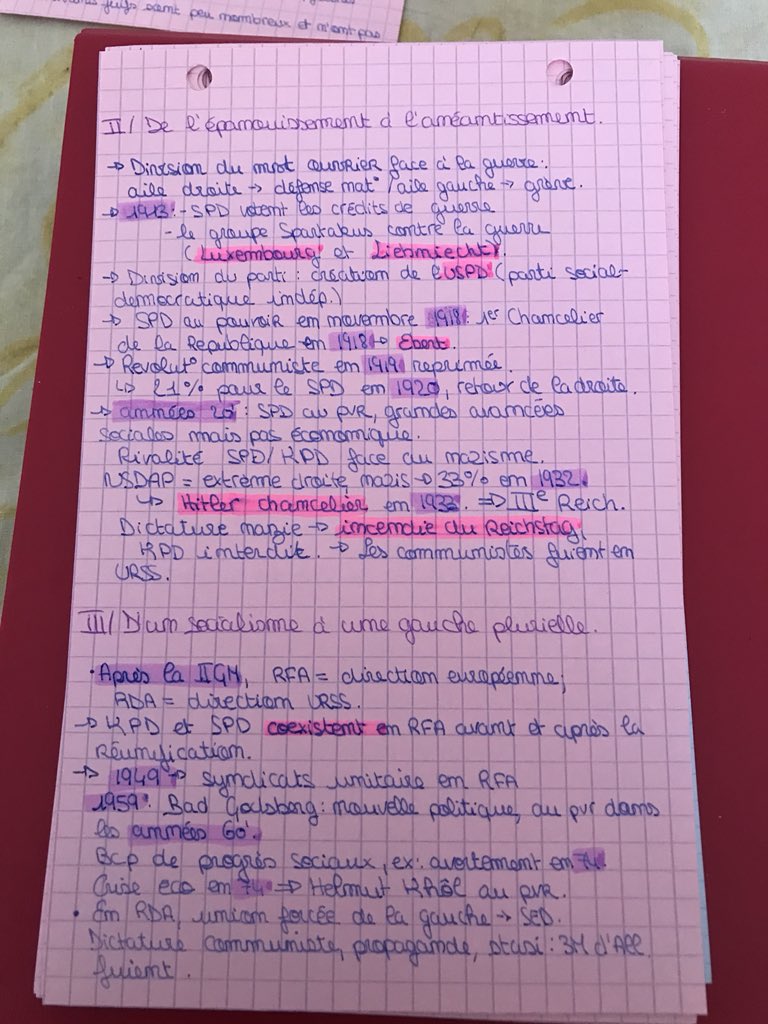 juifs sont peu nombreux et n'ont pas
II/ De l'épanouissement à l'anéantissement.
→ Division du mvt ouvrier face à la guerre:
aile droite → défense nat° / aile gauche → grève.
→ 1913: - SPD votent les crédits de guerre
- le groupe Spartakus contre la guerre
(Luxembourg et Liebnnecht).
→ Division du parti: création de l'USPD (parti social-
democratique indép.)
→ SPD au pouvoir en novembre 1918: 1er Chancelier
de la République en 1918 → Ebert.
→ Révolut° communiste en 1919 reprimée.
↳ 21% pour le SPD en 1920, retour de la droite.
→ années 20: SPD au pvr, grandes avancées
sociales mais pas économique.
Rivalité SPD/KPD face au nazisme.
NSDAP = extrême droite nazis → 33% en 1932.
↳ Hitler chancelier en 1933. ⇒ IIIe Reich.
Dictature nazie → incendie du Reichstag,
KPD interdit. → Les communistes fuient en
URSS.
III/ D'un socialisme à une gauche plurielle.
• Après la IIGM, RFA = direction européenne,
RDA = direction URSS.
→ KPD et SPD coexistent en RFA avant et après la
Réunification.
→ 1949 → syndicats unitaire en RFA
1959: Bad Godsberg: nouvelle politique, au pvr dans
les années 60'.
Bcp de progrès sociaux, ex: avortement en 74.
Crise eco en 74 ⇒ Helmut au pvr.
• En RDA, union forcée de la gauche → SED.
Dictature communiste, propagande, stasi: 3M d'All.
fuient.